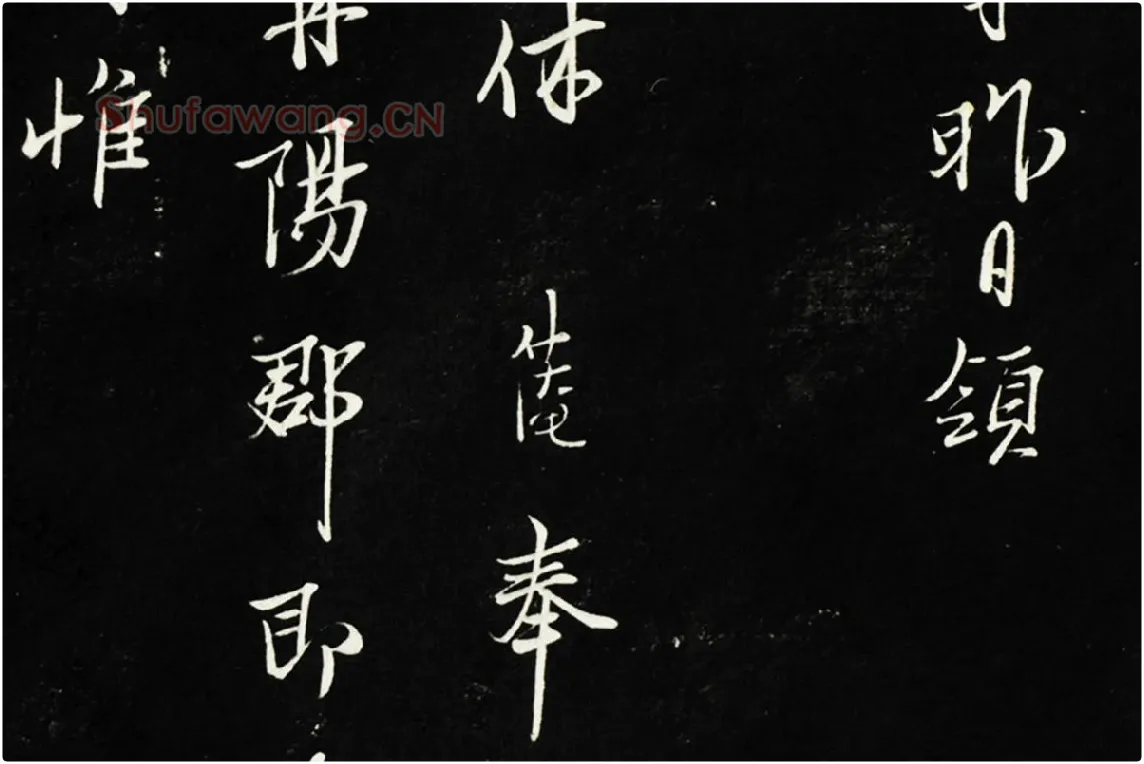 昨日領
休 奉
陽郡即
惟
Shufawang.CN